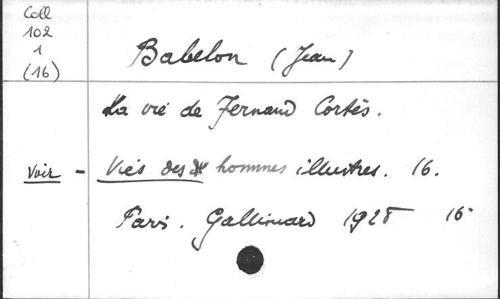 Coll
102
1
(16)
Babelon (Jean)
La vie de Fernand Cortés.
Voir - Vies des hommes illustres. 16.
Paris. Gallimard 1928 16